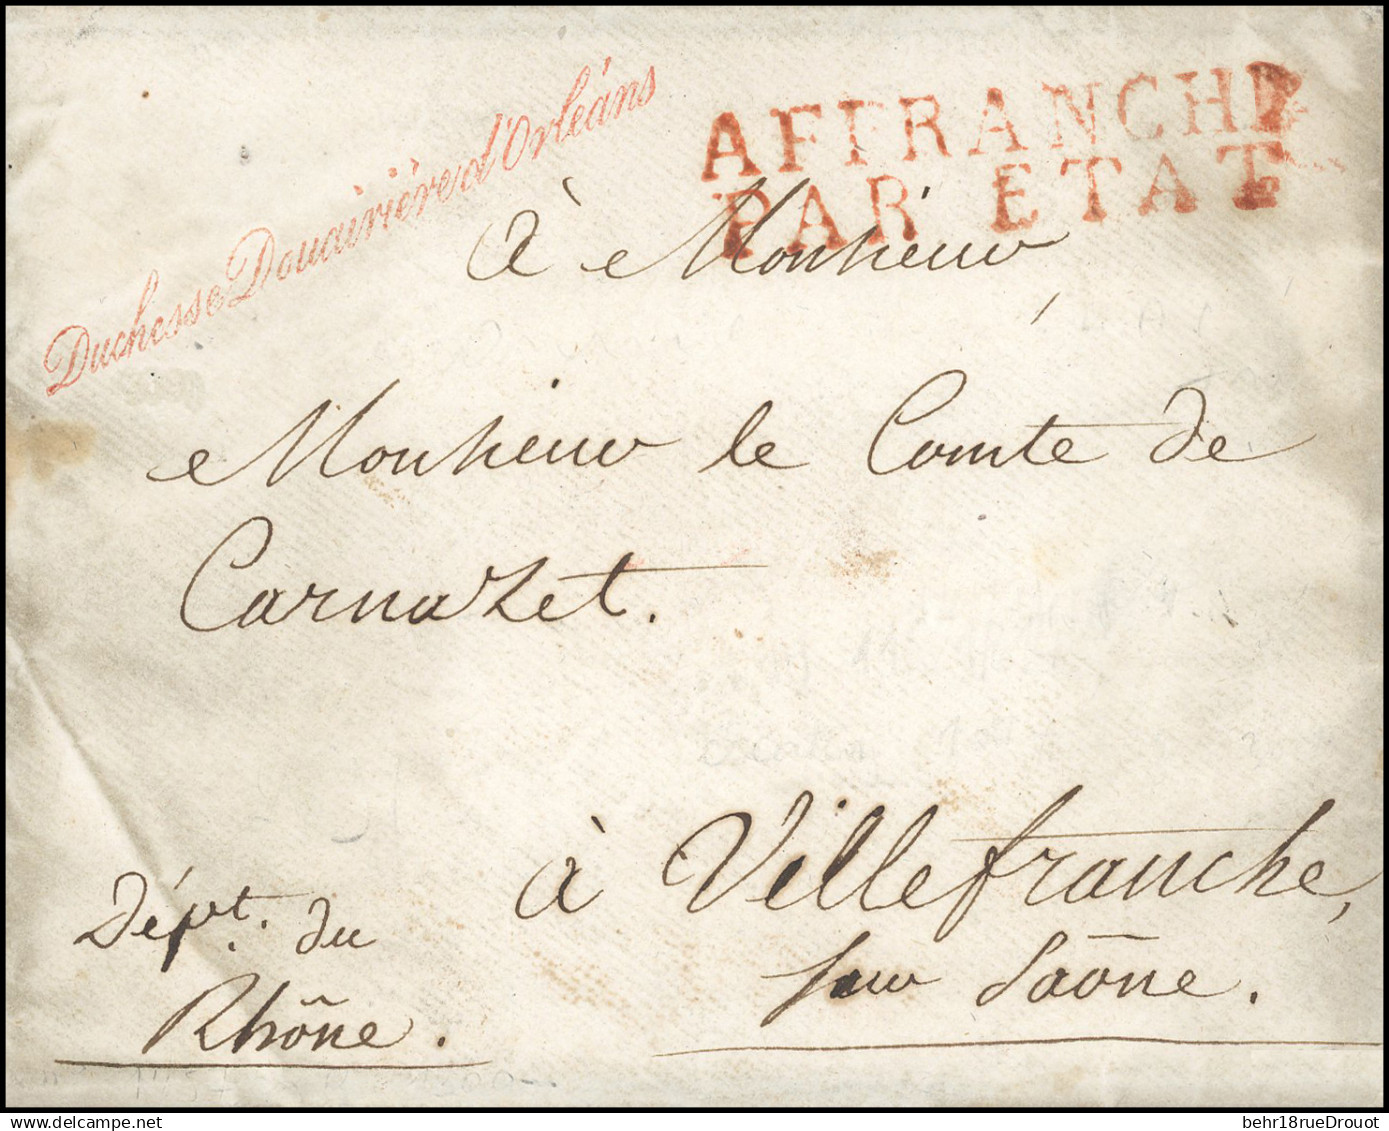 Duchesse Douairière d'Orléans
AFFRANCHI
PAR ETAT
à Monsieur
Monsieur le Comte de
Carnazet.
à Villefranche,
sur Saône.
Dépt. du
Rhône.
behr18rueDrouot